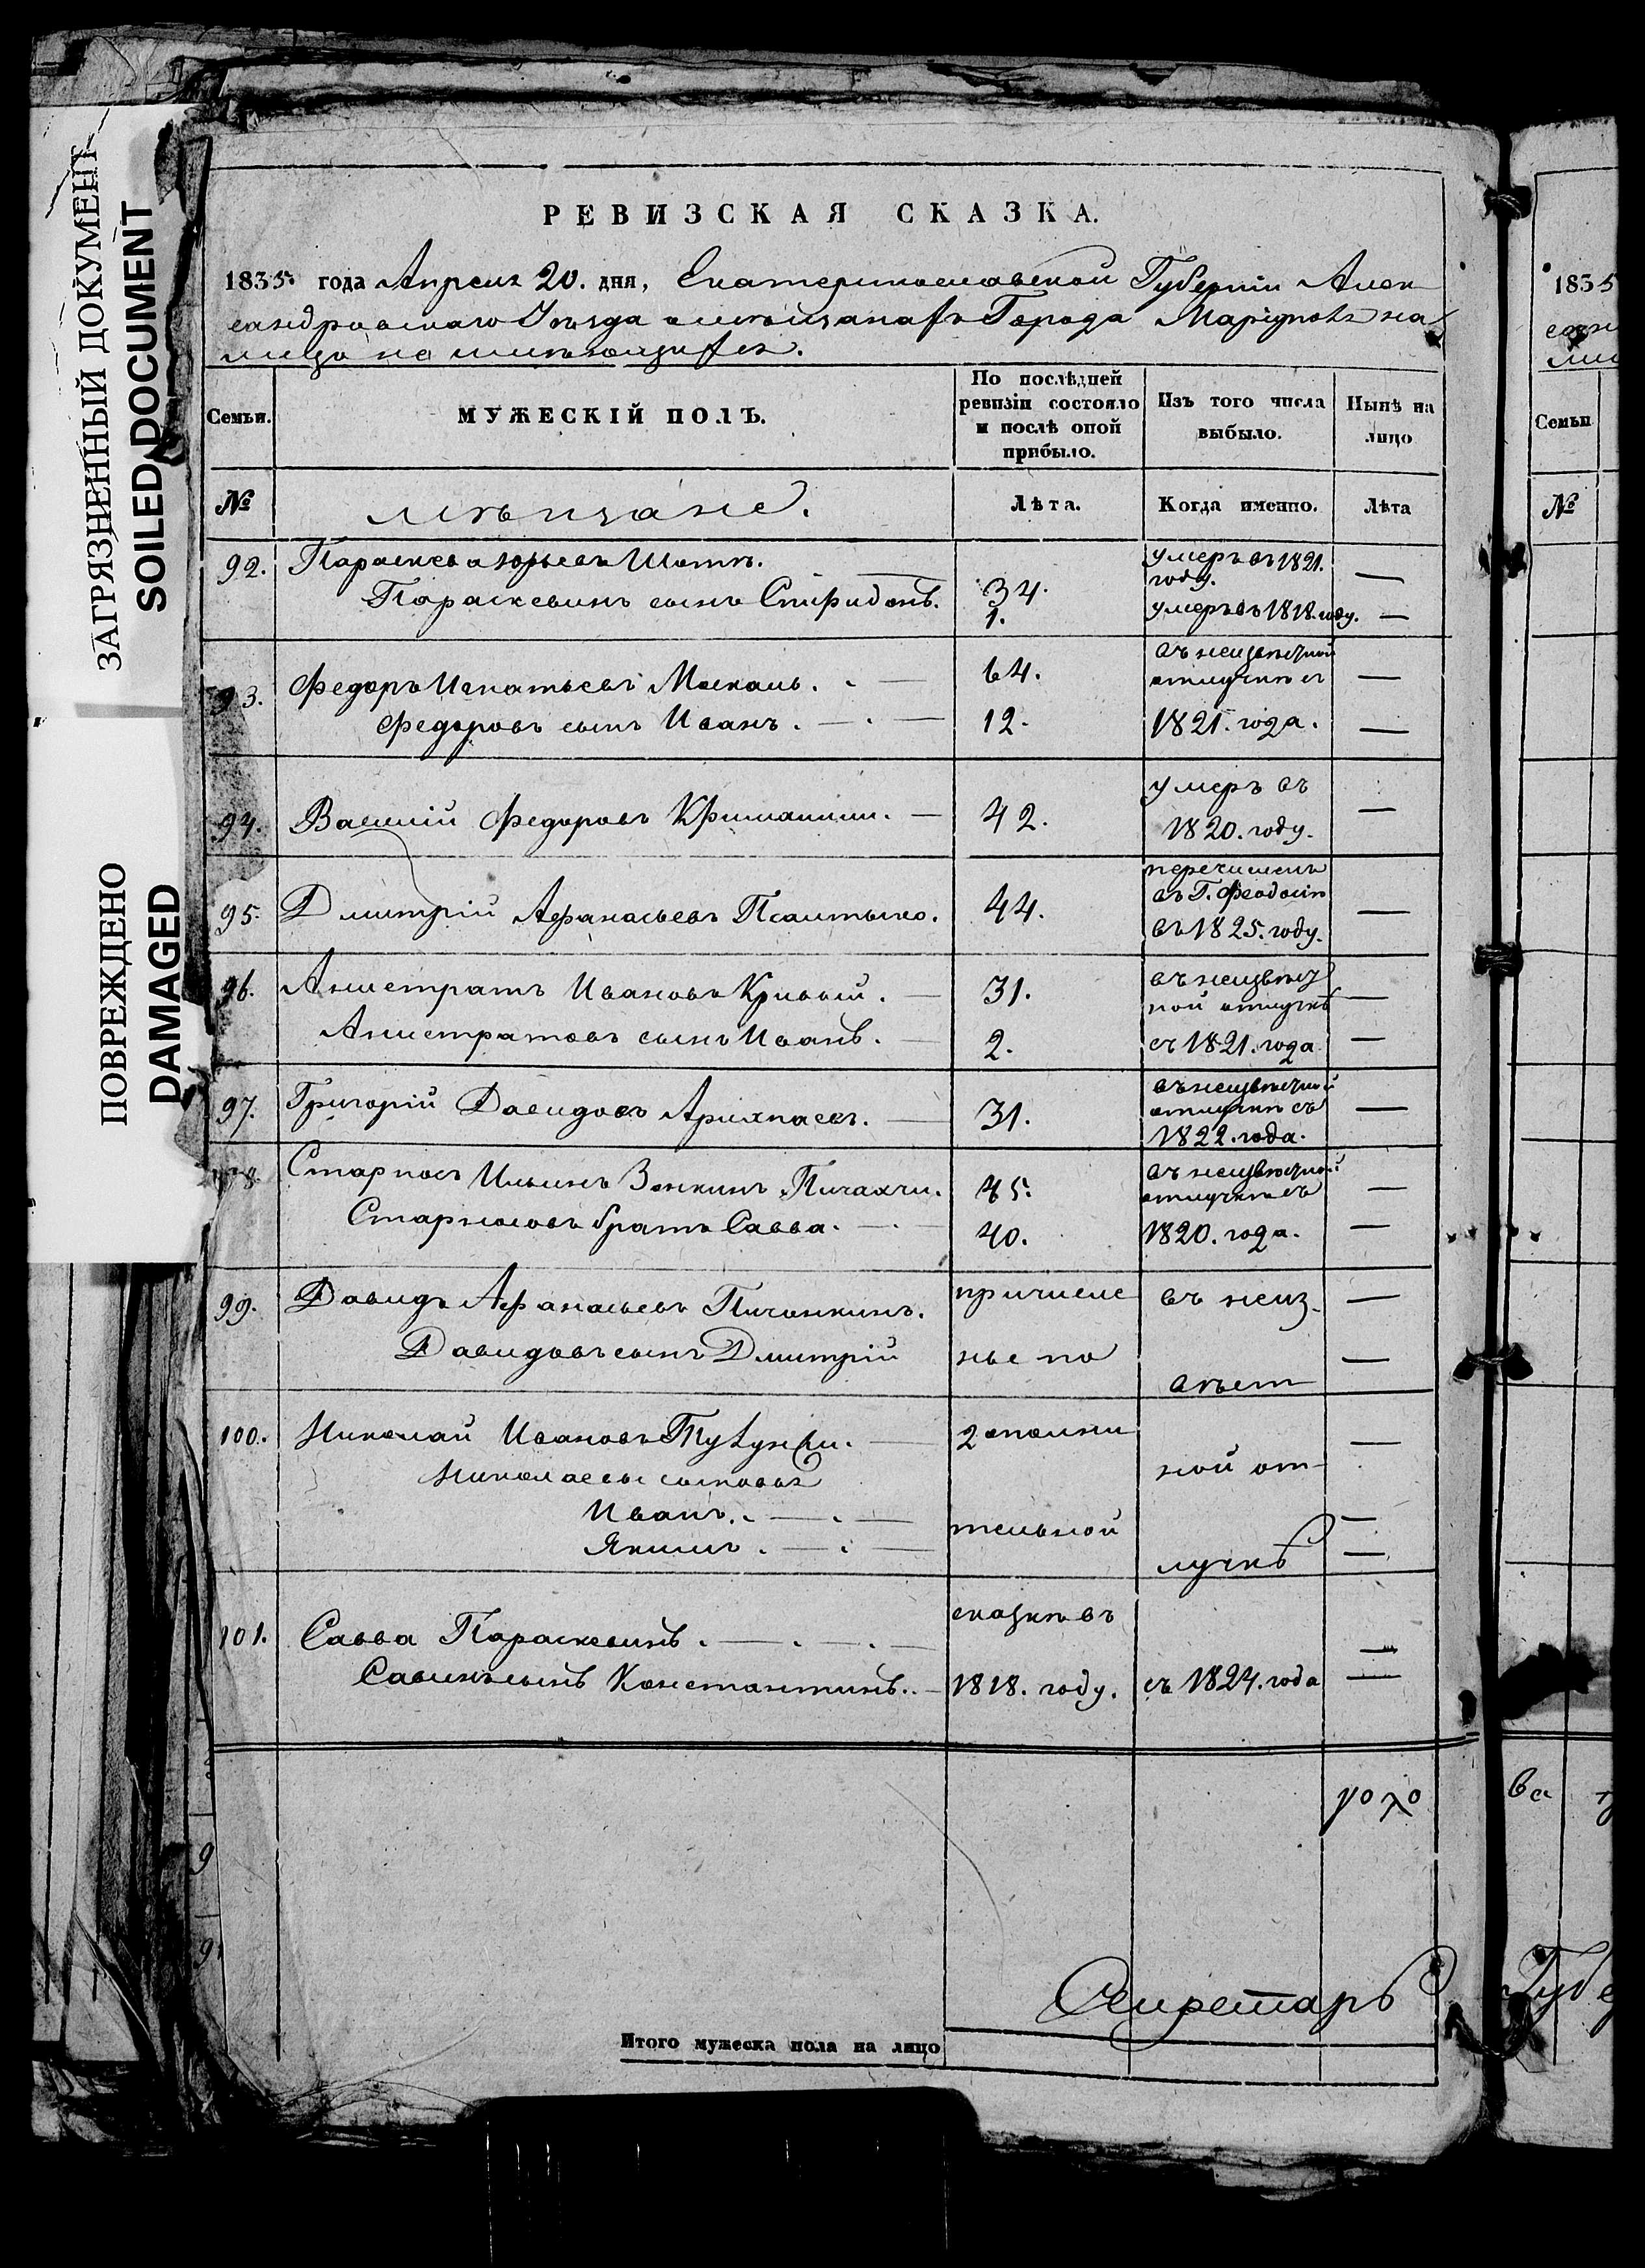 ЗАГРЯЗНЕННЫЙ ДОКУМЕНТ
SOILED DOCUMENT
ПОВРЕЖДЕНО
DAMAGED
РЕВИЗСКАЯ СКАЗКА.
1835 года Апреля 20. дня, Екатеринославской Губерніи Алек
сандровскаго Уѣзда о мѣщанахъ Города Маріуполя на
лицо не имѣющихся.
Семьи.
МУЖЕСКІЙ ПОЛЪ.
По послѣдней ревизіи состояло и послѣ оной прибыло.
Изъ того числа выбыло.
Нынѣ на лицо
№
мѣщане.
Лѣта.
Когда именно.
Лѣта
92. Параскева Юрьевъ 34. умеръ въ 1821. году. —
Параскевинъ сынъ Спиридонъ. 1. умеръ въ 1818. году. —
93. Федоръ Игнатьевъ Москаль. 64. въ неизвѣстной отлучкѣ съ —
Федоровъ сынъ Иванъ. 12. 1821. года. —
94. Василій Федоровъ 42. умеръ въ 1820. году. —
95. Дмитрій Афанасьевъ 44. перечисленъ въ Г. Феодосію въ 1825. году. —
96. Анистратъ Ивановъ Кривой. 31. въ неизвѣст ной отлучкѣ —
Анистратовъ сынъ Иванъ. 2. съ 1821. года —
97. Григорій Давидовъ 31. въ неизвѣстной отлучкѣ съ 1822. года. —
98. Ильинъ 45. въ неизвѣстной отлучкѣ съ —
братъ Савва. 40. 1820. года. —
99. Давидъ Афанасьевъ Пичинкинъ. причисле въ неиз- —
Давидовъ сынъ Дмитрій ные по вѣст —
100. Николай Ивановъ дополни ной от- —
Николаевы сыновья
Иванъ. тельной —
Якимъ. лучкѣ —
101. Савва Параскевинъ. сказкѣ въ —
Савинъ сынъ Константинъ. 1818. году. съ 1824. года —
Секретарь
Итого мужеска пола на лицо
1835
Семьи
№
Губе